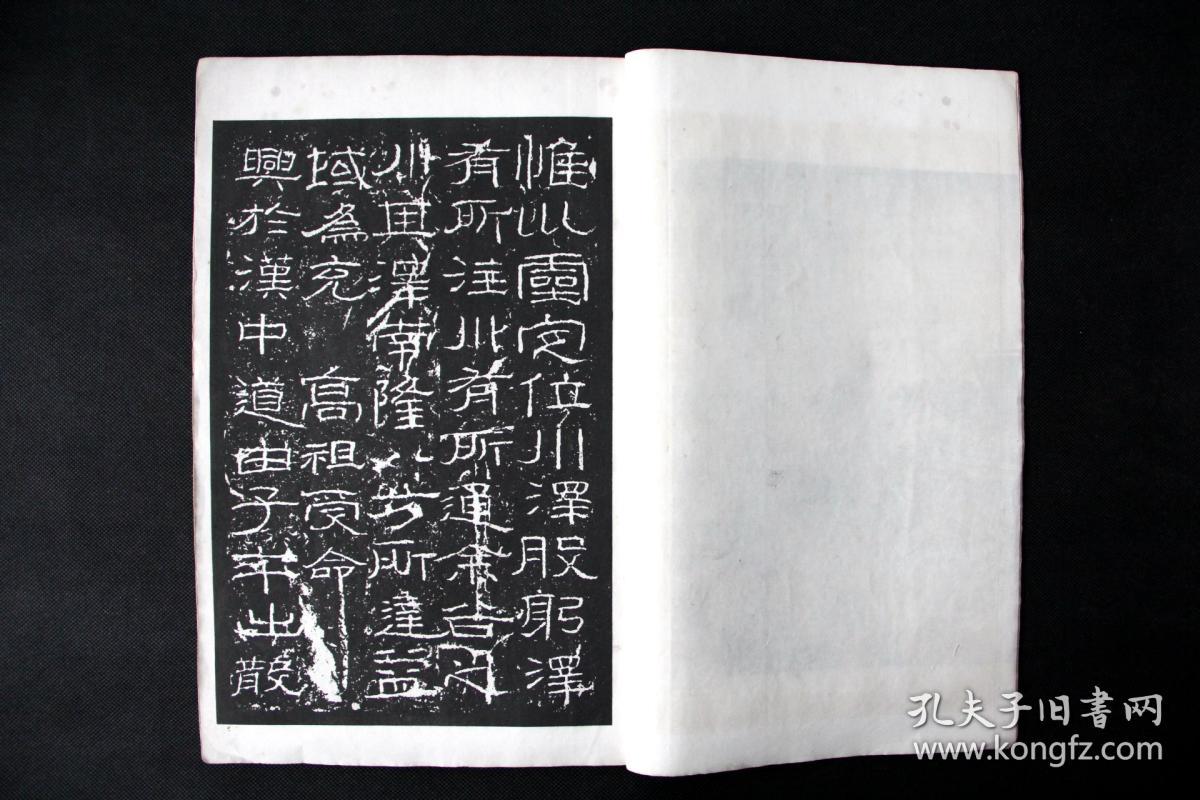 惟巛靈定位川澤股躬澤
有所注川有所通余谷之
川其澤南隆八方所達益
域為充 高祖受命
興於漢中道由子午出散
孔夫子旧書网
www.kongfz.com